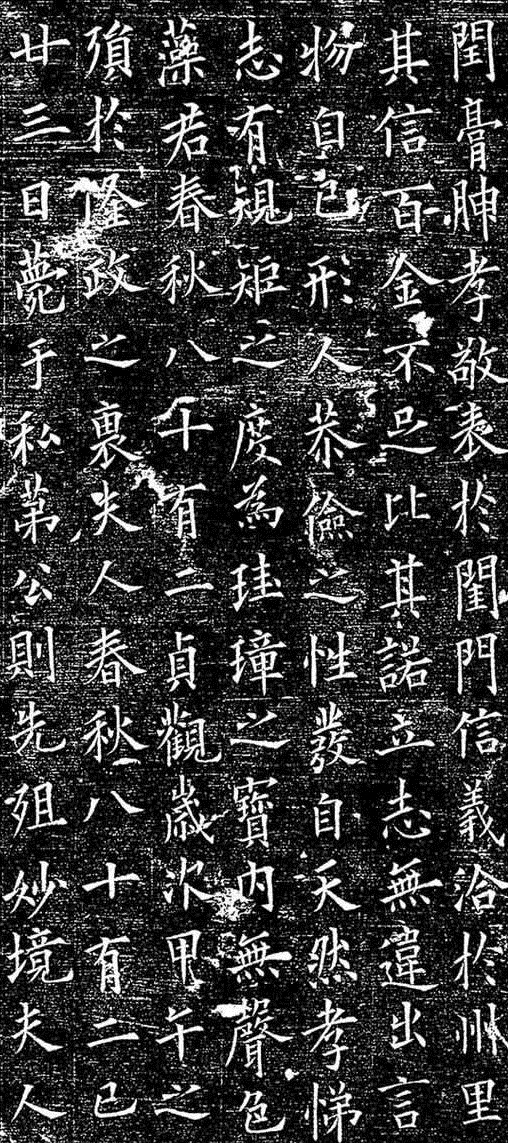 閏膏腴孝敬表於閨門信義洽於州里
其信百金不足比其諾立志無違出言
物自已形人恭儉之性發自天然孝悌
志有規矩之度為珪璋之寶內無聲色
藻君春秋八十有二貞觀歲次甲午之
殞於隆政之裏夫人春秋八十有二已
廿三日薨于私第公則先殂妙境夫人